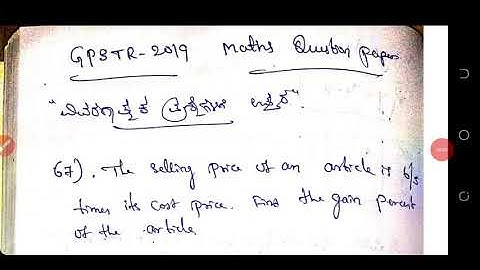 GPSTR-2019 Maths Question paper
"ವಿವರಣಾತ್ಮಕ ಪ್ರಶ್ನೆಗಳ ಉತ್ತರ".
67). The selling price of an article is 6/5
times its cost price. Find the gain percent
of the article